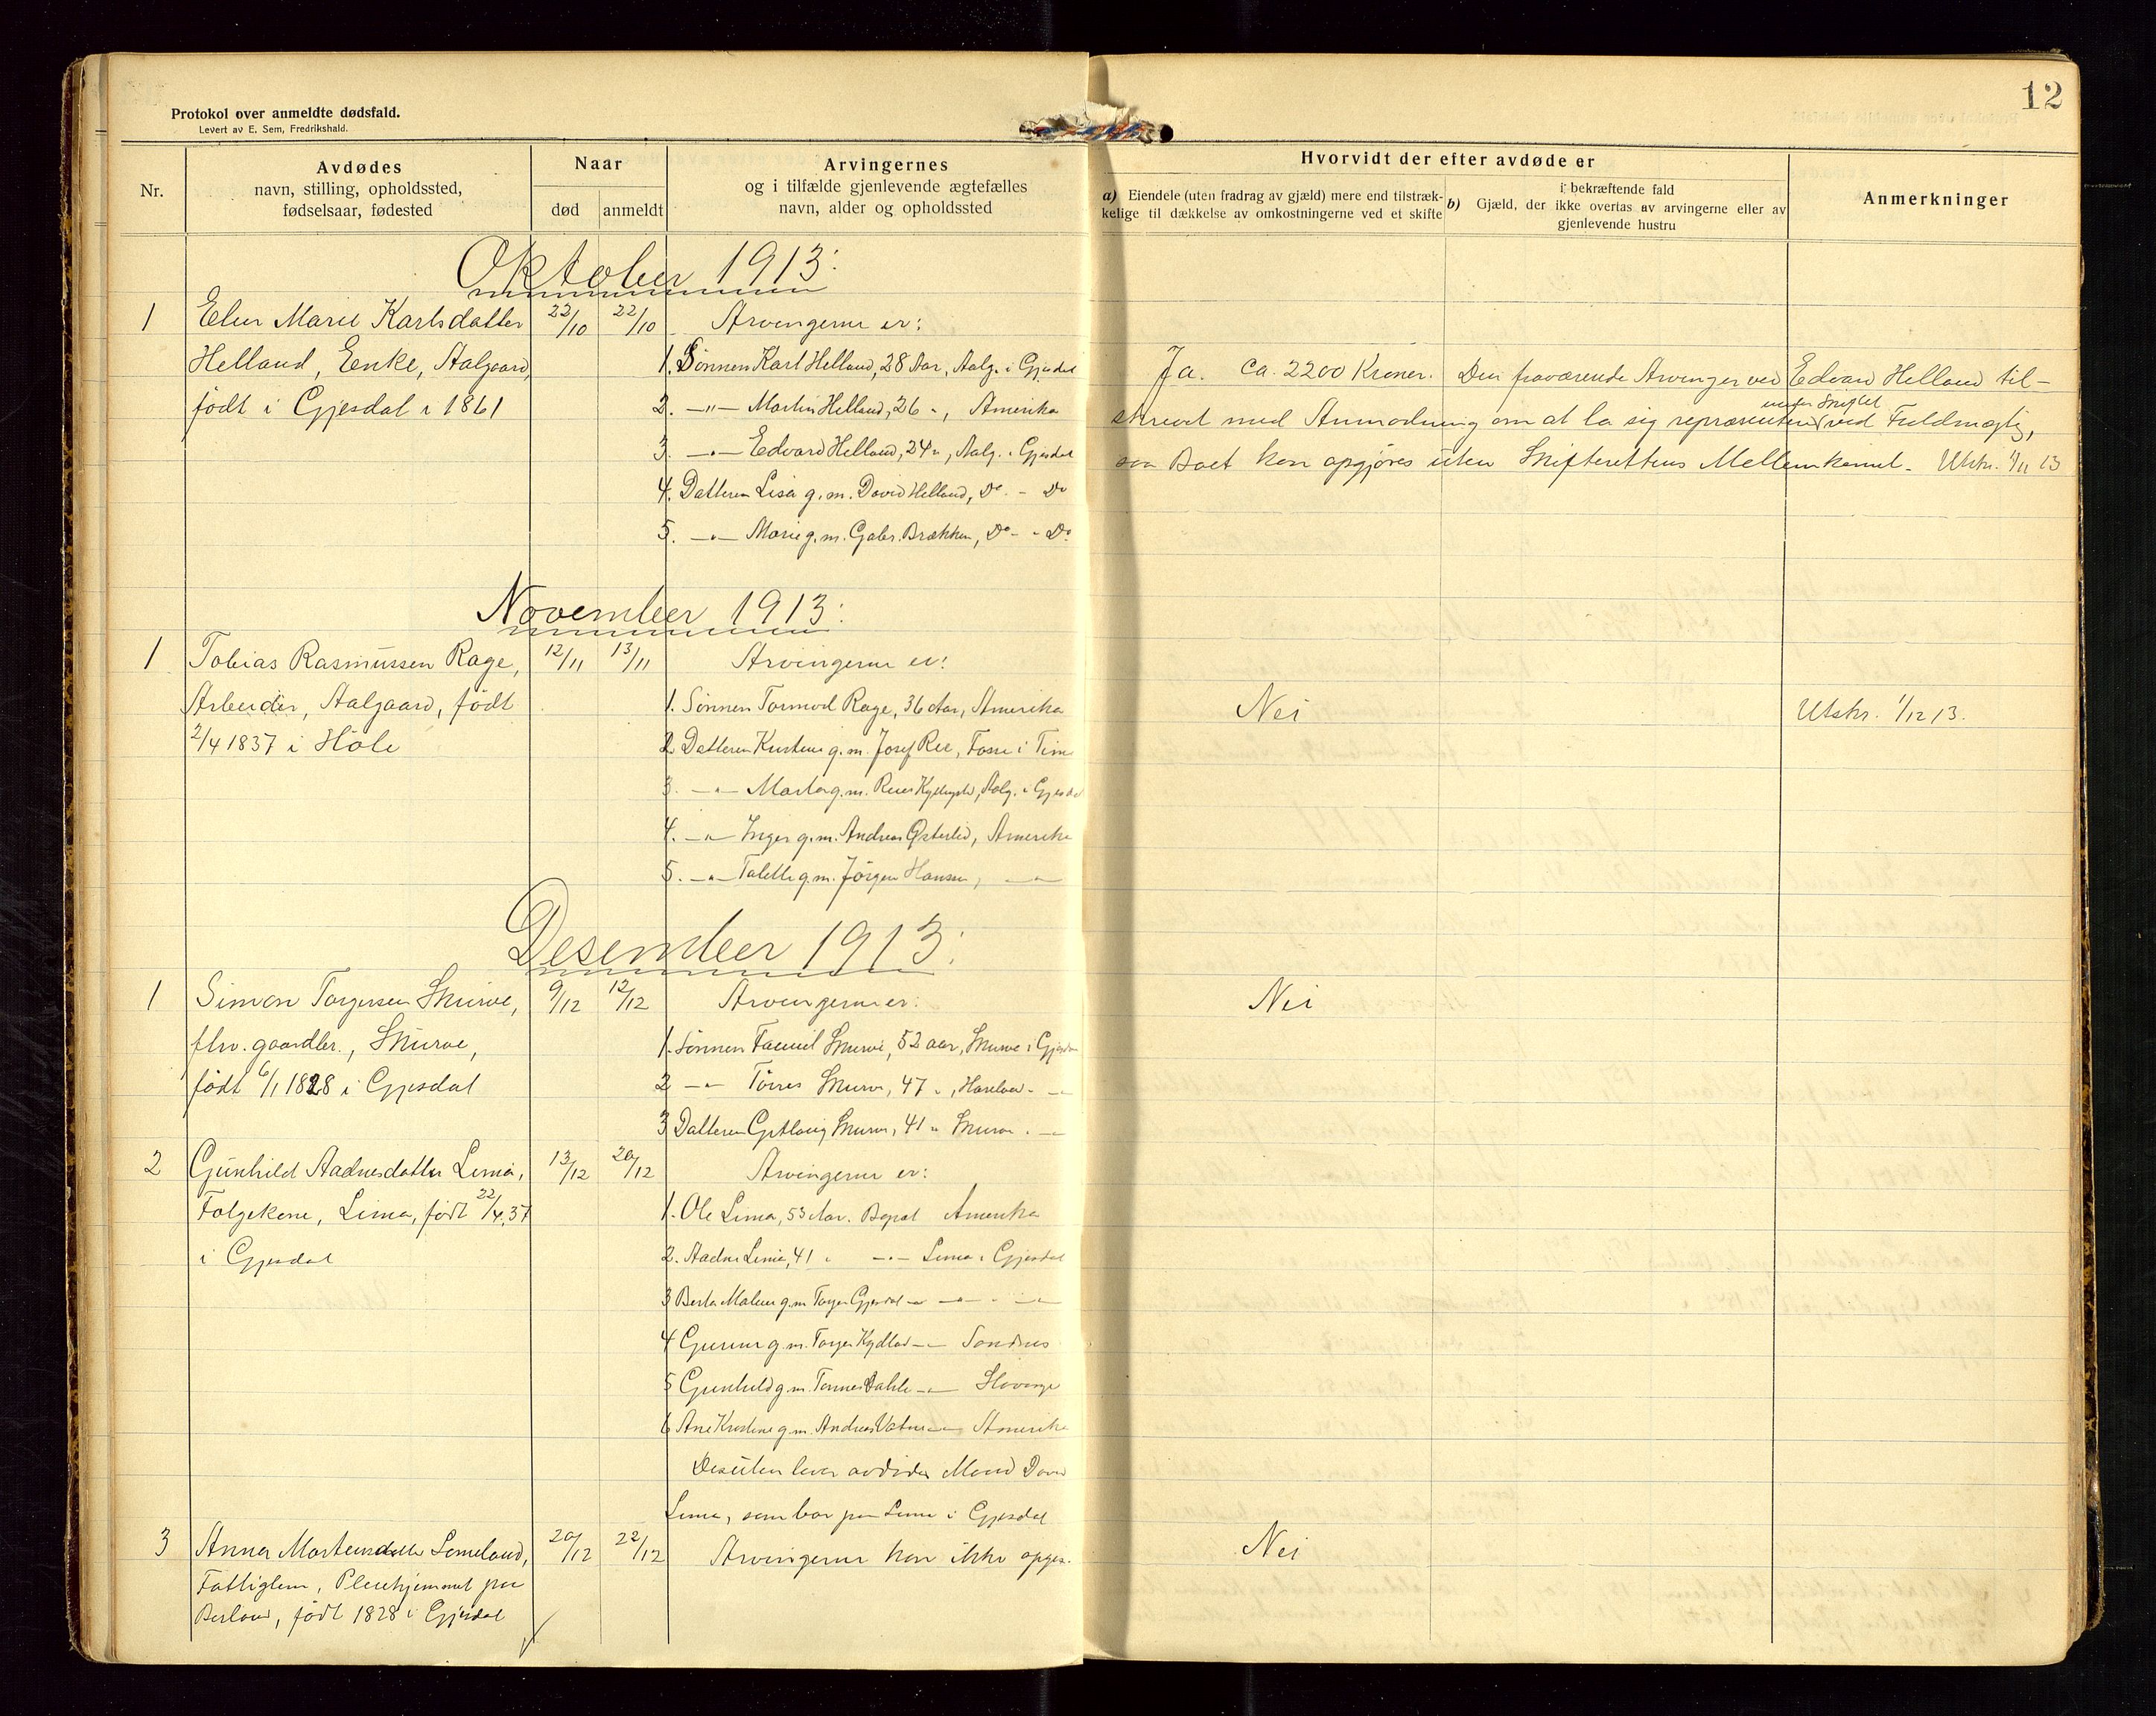 Protokol over anmeldte dødsfald.
Levert av E. Sem, Fredrikshald.
Nr.
Avdødes
navn, stilling, opholdssted,
fødselsaar, fødested
Naar
død anmeldt
Arvingernes
og i tilfælde gjenlevende ægtefælles
navn, alder og opholdssted
Oktober 1913:
1 Elen Marie Karlsdatter 22/10 22/10 Arvingerne er:
Helland, Enke, Aalgaard, 1. Sønnen Karl Helland, 28 Aar, Aalg. i Gjesdal
født i Gjesdal i 1861 2. -"- Martin Helland, 26 ", Amerika
3. -"- Edvard Helland, 24 ", Aalg. i Gjesdal
4. Datteren Lisa g. m. David Helland, Do - Do
5. -"- Marie g. m. Gabr. Brækken, Do - Do
November 1913:
1 Tobias Rasmussen Rage, 12/11 13/11 Arvingerne er:
Arbeider, Aalgaard, født 1. Sønnen Tormod Rage, 36 Aar, Amerika
2/4 1837 i Høle 2. Datteren g. m. Josef Ree, Fosse i Time
3. -"- Marta g. m. Aalg. i Gjesdal
4. -"- Inger g. m. Andreas Østerlid, Amerika
5. -"- g. m. Jørgen Hansen, -"-
Desember 1913:
1 Simon Torgersen Skurve, 9/12 12/12 Arvingerne er:
fhv. gaardbr., Skurve, 1. Sønnen Skurve, 52 aar, Skurve i Gjesdal
født 6/1 1828 i Gjesdal 2 -"- Tørres Skurve, 47 ",
3 Datteren Skurve, 41 " Skurve. -"-
2 Gunhild Aadnesdatter Lima, 13/12 20/12 Arvingerne er:
Folgekone, Lima, født 22/4 37 1. Ole Lima, 53 Aar. Bopæl Amerika
i Gjesdal 2. Aadne Lima, 41 " -"- Lima i Gjesdal
3 Berta Malene g. m. Torger Gjesdal -"- -"- -"-
4 g. m. Torger Kydland -"- Sandnes
5 Gunhild g. m. Tønnes -"- Stavanger
6 Ane Kristine g. m. Andreas -"- Amerika
Desuten lever avdødes Mand David
Lima, som bor paa Lima i Gjesdal
3 Anna Martensdatter 20/12 22/12 Arvingerne kan ikke opges.
Fattiglem, Pleiehjemmet paa
født 1828 i Gjesdal
12
Hvorvidt der efter avdøde er
a) Eiendele (uten fradrag av gjæld) mere end tilstræk-
kelige til dækkelse av omkostningerne ved et skifte
i bekræftende fald
b) Gjæld, der ikke overtas av arvingerne eller av
gjenlevende hustru
Anmerkninger
Ja. Ca. 2200 Kroner. Den fraværende Arvinger ved Edvard Helland til-
under Skiftet
skrevet med Anmodning om at la sig repræsentere ved Fuldmægtig,
saa Boet kan opgjøres uten Skifterettens Mellemkomst. Utskr. 1/11 13
Nei Utskr. 1/12 13.
Nei
Nei